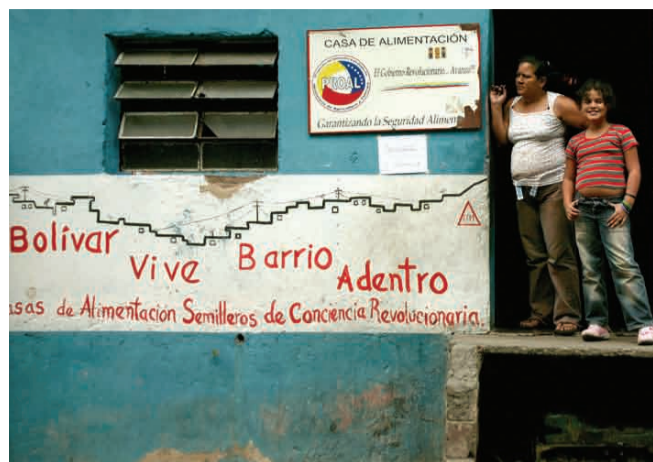 CASA DE ALIMENTACIÓN
El Gobierno Revolucionario... Avanza!!
PROAL
Garantizando la Seguridad
Bolívar
Vive
Barrio
Adentro
de Alimentación Semilleros de Conciencia Revolucionaria